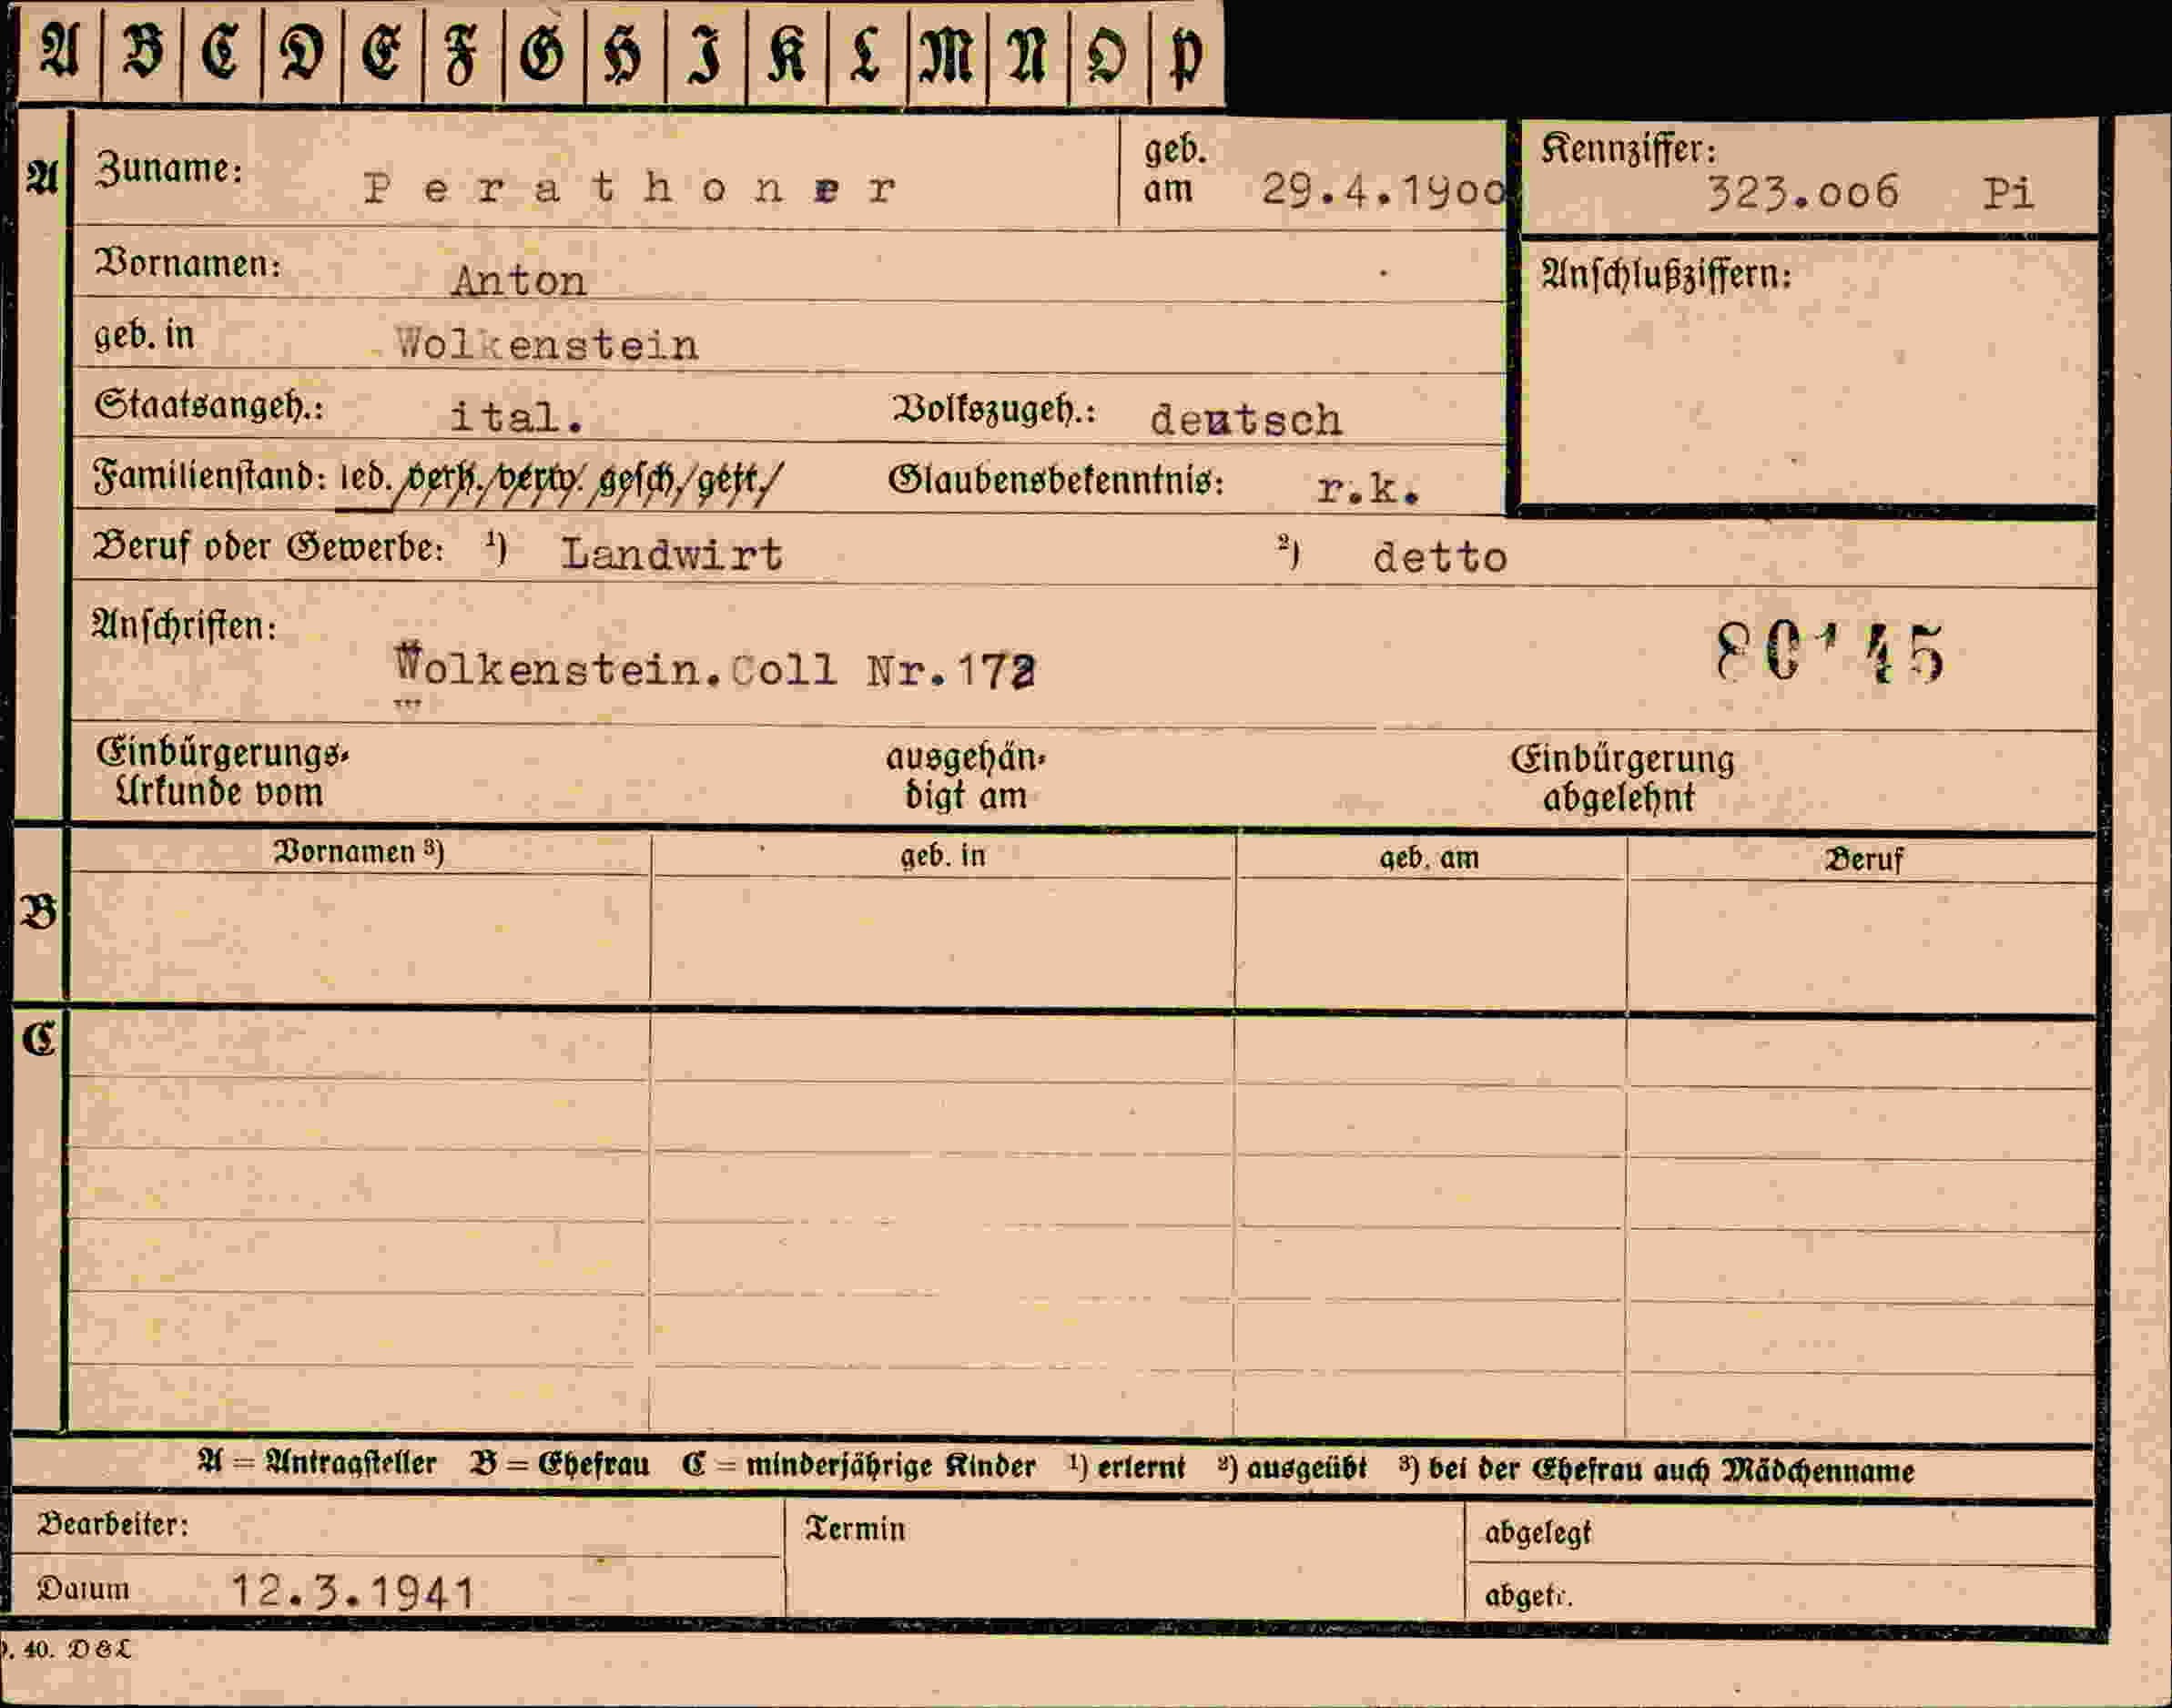 A B C D E F G H I K L M N O P
A Zuname: Perathoner geb. am 29.4.1900 Kennziffer: 323.006 Pi
Vornamen: Anton Anschlußziffern:
geb. in Wolkenstein
Staatsangeh.: ital. Volkszugeh.: deutsch
Familienstand: led. verh. verw. gesch. getr. Glaubensbekenntnis: r.k.
Beruf oder Gewerbe: ¹) Landwirt ²) detto
Anschriften: Wolkenstein.Coll Nr.172
Einbürgerungs- ausgehän- Einbürgerung
Urkunde vom digt am abgelehnt
Vornamen ³) geb. in geb. am Beruf
B
C
A = Antragsteller B = Ehefrau C = minderjährige Kinder ¹) erlernt ²) ausgeübt ³) bei der Ehefrau auch Mädchenname
Bearbeiter: Termin abgelegt
Datum 12.3.1941 abgetr.
40. D&L